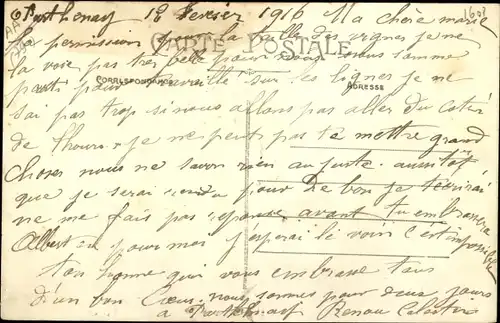 Parthenay 12 Fevrier 1916 Ma chère marie
La permission pour la taille des vignes je ne
CARTE POSTALE
la voie pas très belle pour nous nous somme
CORRESPONDANCE
ADRESSE
parti pour travaille sur les lignes je ne
sai pas trop si nous allons pas aller du coter
de thouars je ne peut pas te mettre grand
choses nous ne savon rien au juste aussitot
que je serai rendu pour de bon je técrirai
ne me fais pas reponse avant tu embrassera
Albert pour moi j'esperai le voir c'est impossible
ton homme qui vous embrasse tous
d'un bon Cœur nous sommes pour deux jours
a Parthenay Renou Celestin